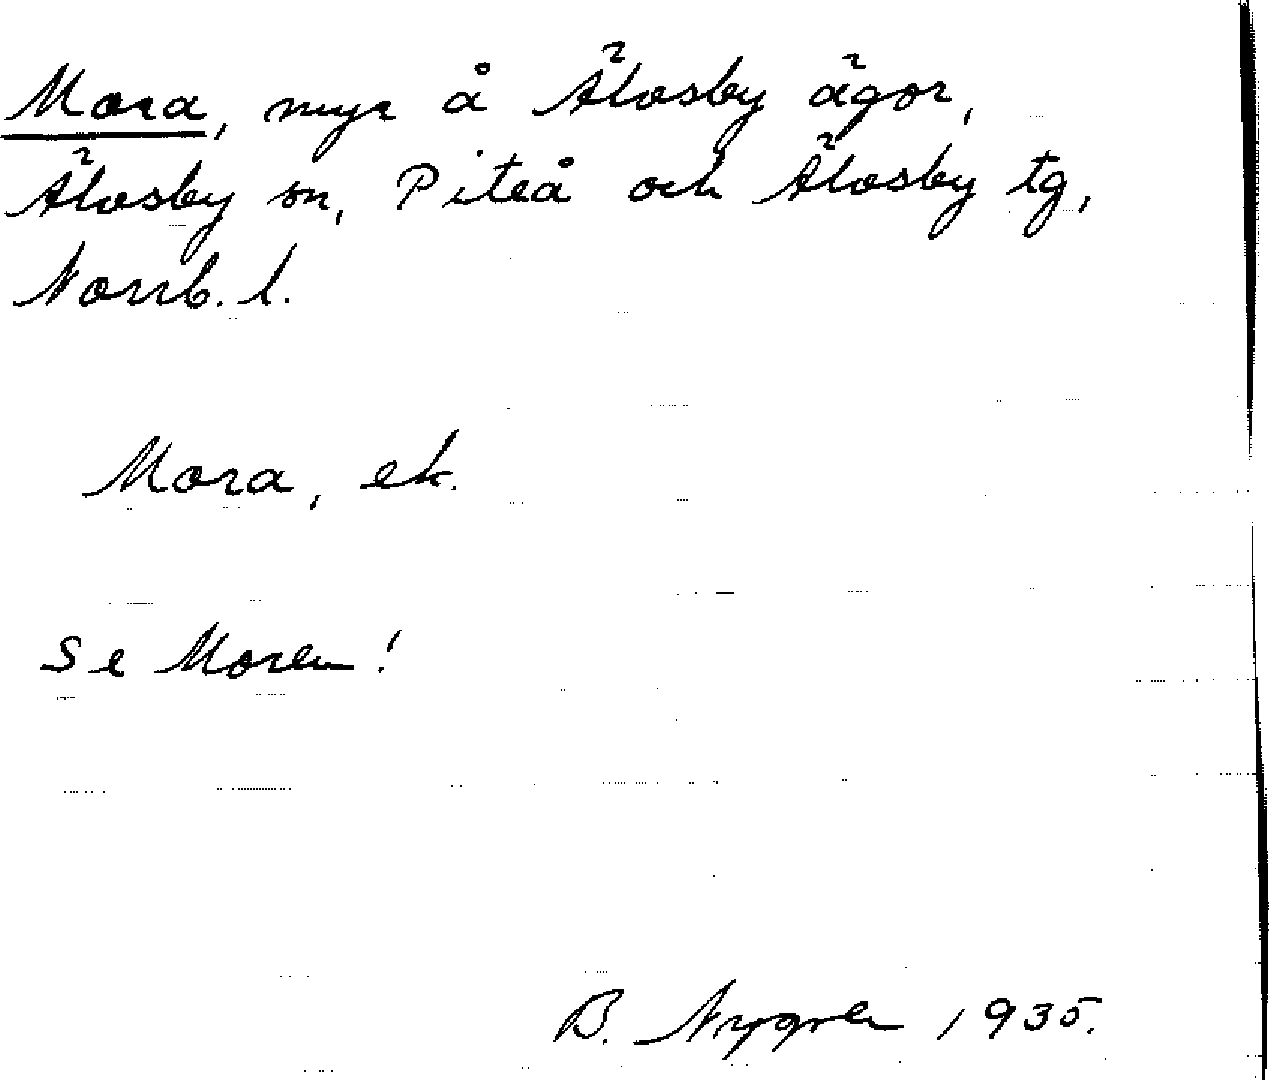 Mora, myr å Älvsby ägor,
Älvsby sn, Piteå och Älvsby tg,
Norrb. l.
Mora, ek.
Se Moren!
B. Nygren 1935.